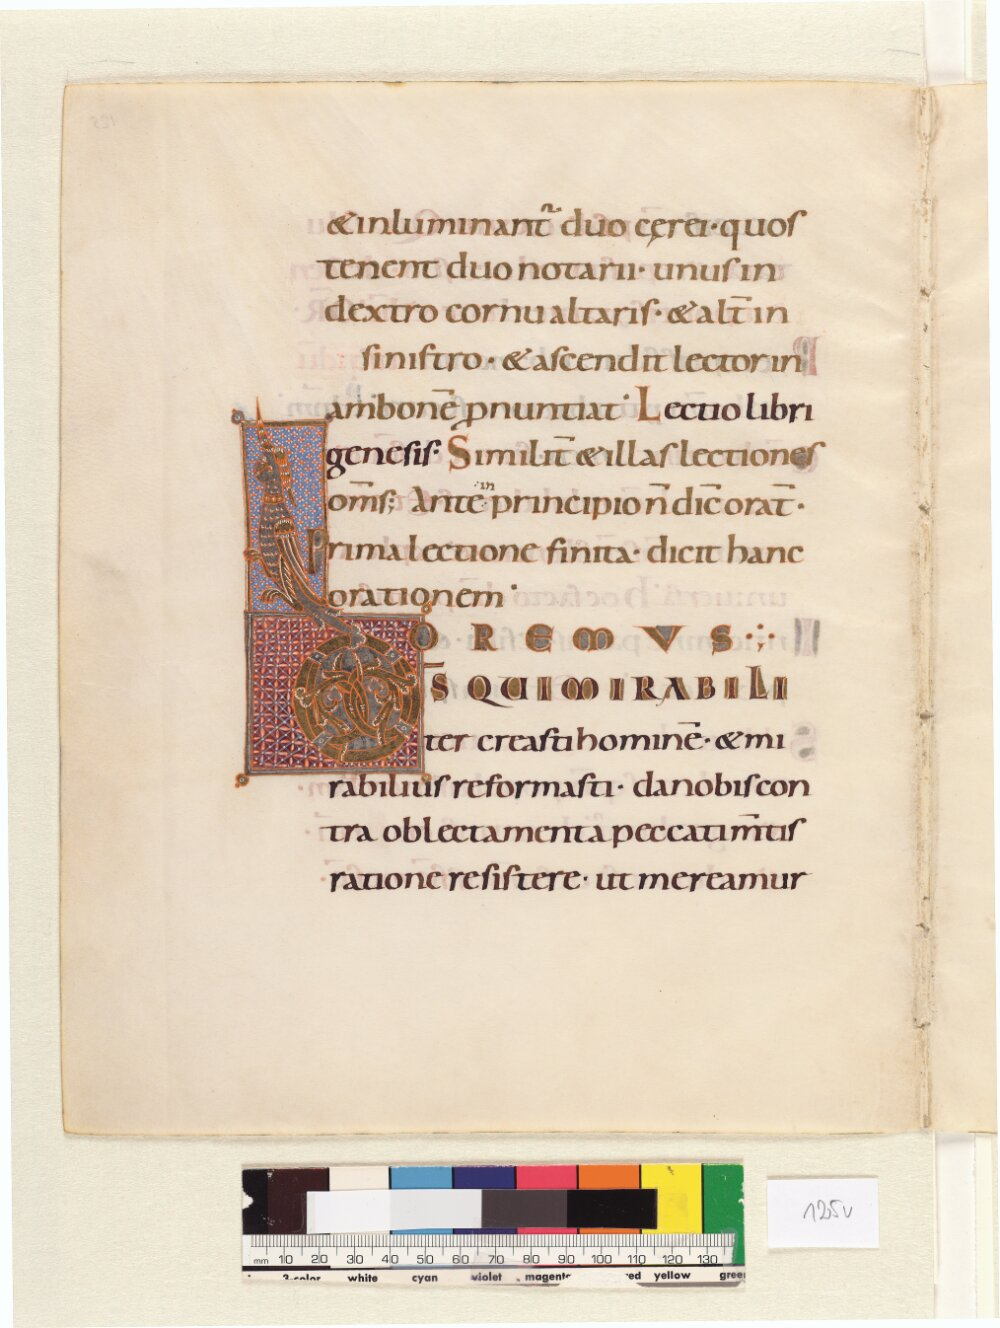 &inluminant̃ duo cęrei·quos
tenent duo notarii· unus in
dextro cornu altaris· & alt̄ in
sinistro· & ascendit lector in
ambonē ꝓnuntiat· Lectio libri
genesis· Similit̄ & illas lectiones
om̄s; Ante in principio n̄ dic̄ orat̄·
Prima lectione finita· dicit hanc
orationem·
OREMVS·:·
D̄S QUI MIRABILI
ter creasti hominē· & mi
rabilius reformasti· da nobis con
tra oblectamenta peccati m̄tis
ratione resistere· ut mereamur
125v
mm 10 20 30 40 50 60 70 80 90 100 110 120 130
3-color white cyan violet magenta red yellow green